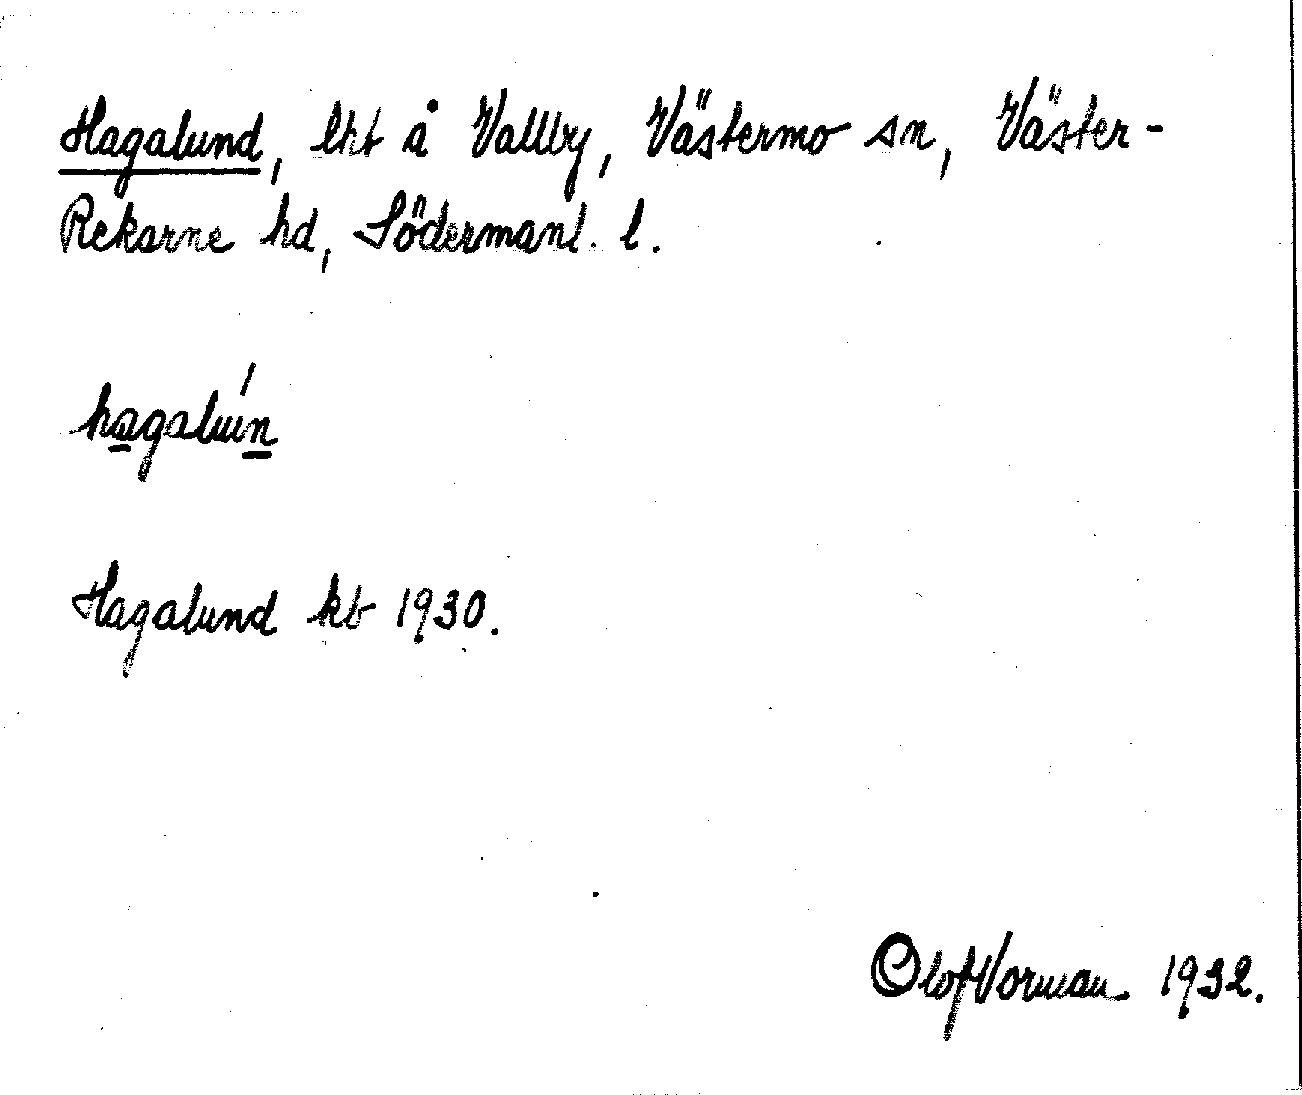 Hagalund, lht å Vallby, Västermo sn, Väster-
Rekarne hd, Södermanl. l.
hagaluń
Hagalund kb 1930.
Olof Norman 1932.